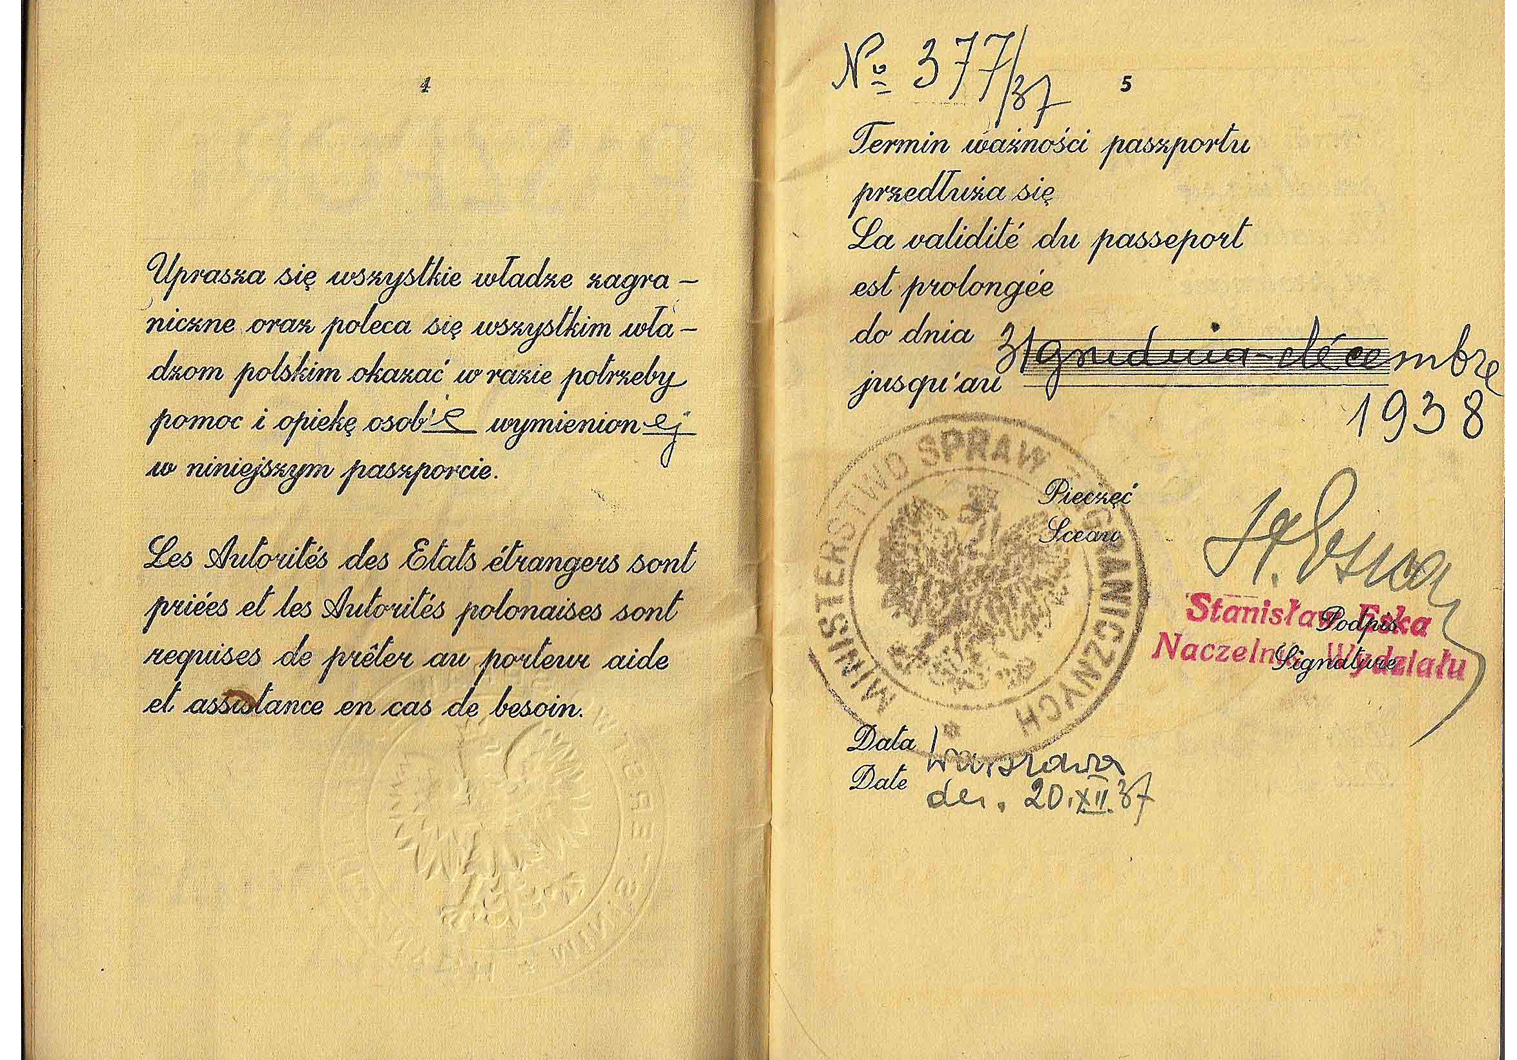 4
Uprasza się wszystkie władze zagra–
niczne oraz poleca się wszystkim wła–
dzom polskim okazać w razie potrzeby
pomoc i opiekę osobie wymienionej
w niniejszym paszporcie.
Les Autorités des Etats étrangers sont
priées et les Autorités polonaises sont
requises de prêter au porteur aide
et assistance en cas de besoin.
№ 377/37
5
Termin ważności paszportu
przedłuża się
La validité du passeport
est prolongée
do dnia
jusqu'au
31 grudnia-décembre
1938
MINISTERSTWO SPRAW ZAGRANICZNYCH
Pieczęć
Sceau
St. Eska
Stanisław Eska
Podpis
Naczelnik Wydziału
Signature
Data Warszawa
Date dn. 20.XII.37